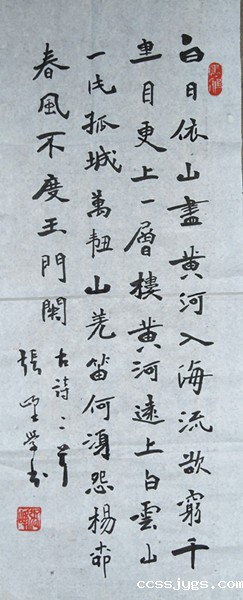 白日依山盡黃河入海流欲窮千
里目更上一層樓黃河遠上白雲山
一片孤城萬韌山羌笛何須怨楊柳
春風不度玉門關
古詩二首
張学书
ccssjygs.com